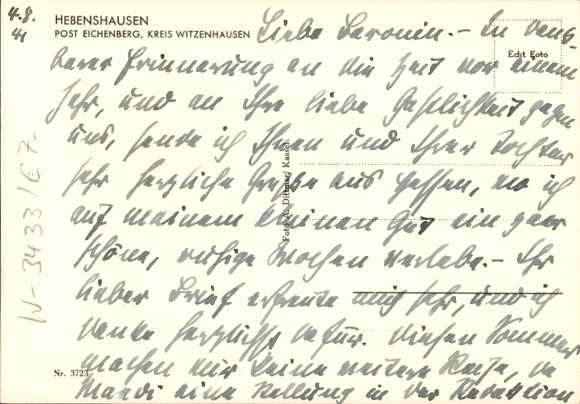 4.8.
41
HEBENSHAUSEN
POST EICHENBERG, KREIS WITZENHAUSEN
Echt Foto
Liebe Baronin. – In dank-
barer Erinnerung an die Zeit vor einem
Jahr, und an Ihre liebe Gastlichkeit gegen
uns, sende ich Ihnen und Ihrer Tochter
sehr herzliche Grüsse aus Hessen, wo ich
auf meinem kleinen Gut ein paar
schöne, ruhige Wochen verlebe. – Ihr
lieber Brief erfreute mich sehr, und ich
danke herzlichst dafür. Diesen Sommer
machen wir keine weitere Reise, da
eine Stellung in der Redaktion
Foto A. Dittmar, Kassel
Nr. 3723